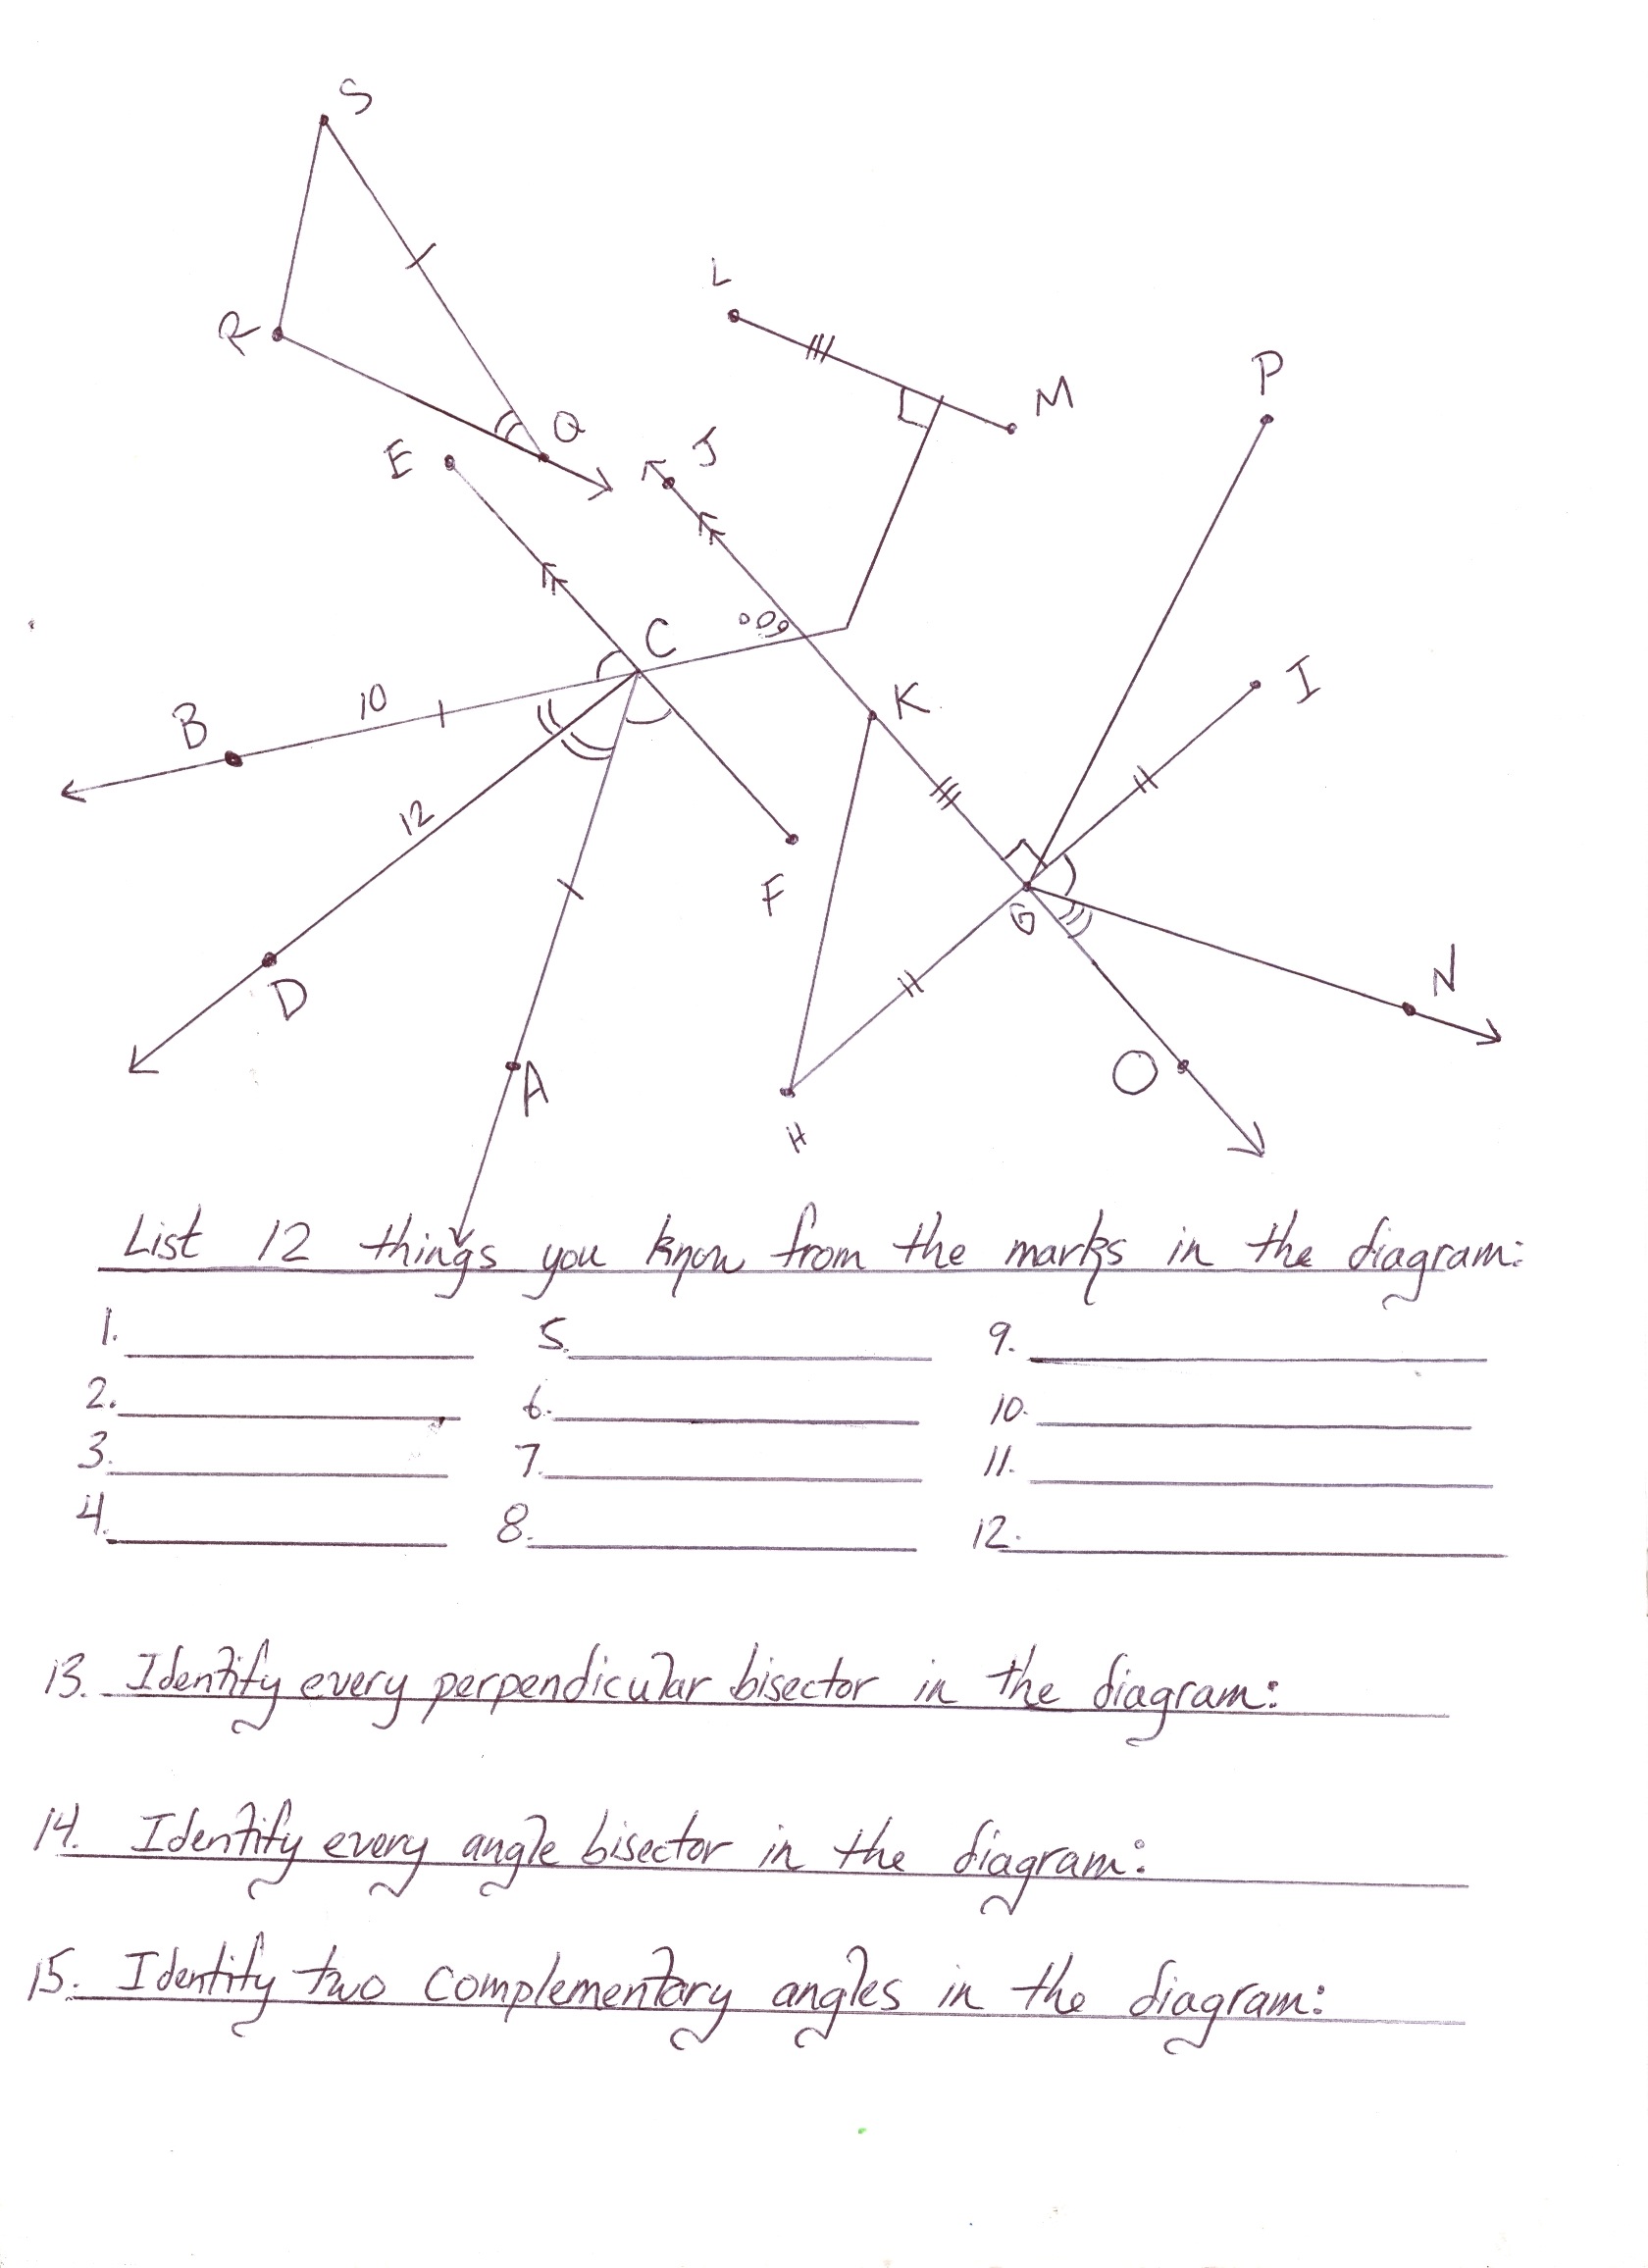 S
L
R
P
M
Q
E
J
C
K
I
B
10
12
F
G
N
D
O
A
H
List 12 things you know from the marks in the diagram:
1. 5. 9.
2. 6. 10.
3. 7. 11.
4. 8. 12.
13. Identify every perpendicular bisector in the diagram:
14. Identify every angle bisector in the diagram:
15. Identify two complementary angles in the diagram: